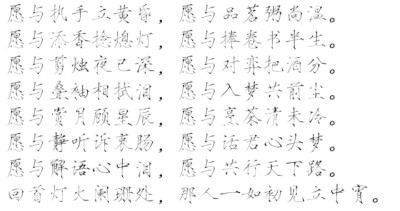 愿与执手立黄昏，愿与品茗粥尚温。
愿与添香捻熄灯，愿与捧卷书半生。
愿与剪烛夜已深，愿与对弈把酒分。
愿与叠袖相拭泪，愿与入梦共前尘。
愿与赏月顾星辰，愿与烹茶清未冷。
愿与静听诉衷肠，愿与话君心头梦。
愿与解语心中泪，愿与共行天下路。
回首灯火阑珊处，那人一如初见立中宵。